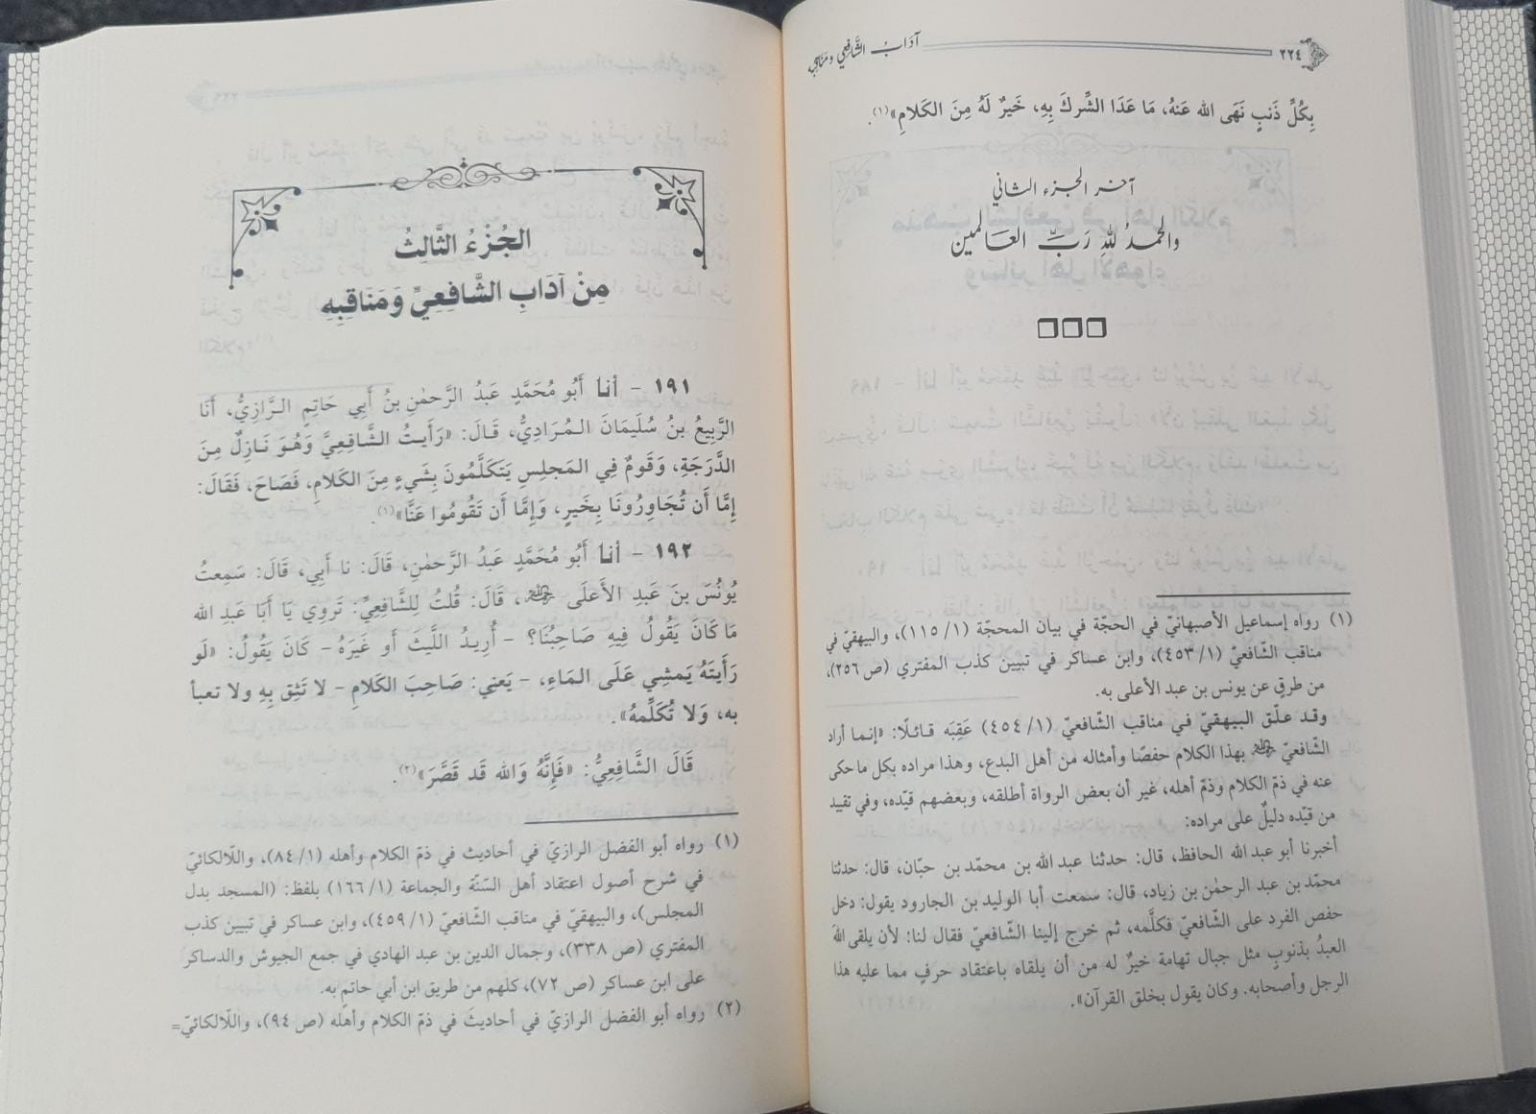 ٢٢٤
آدَابُ الشَّافِعِي وَمَنَاقِبِهِ
بِكُلِّ ذَنبٍ نَهَى الله عَنهُ، مَا عَدَا الشِّركَ بِهِ، خَيرٌ لَهُ مِنَ الكَلامِ»(١).
آخر الجزء الثاني
والحمدُ للهِ رَبِّ العَالمين
(١) رواه إسماعيل الأصبهانيّ في الحجّة في بيان المحجّة (١/ ١١٥)، والبيهقيّ في
مناقب الشّافعيّ (١/ ٤٥٣)، وابن عساكر في تبيين كذب المفتري (ص ٢٥٦)،
من طرقٍ عن يونس بن عبد الأعلى به.
وقد علّق البيهقيّ في مناقب الشّافعيّ (١/ ٤٥٤) عَقِبَه قائلًا: «إنما أراد
الشّافعيّ بهذا الكلام حفصًا وأمثاله من أهل البدع، وهذا مراده بكل ما حكى
عنه في ذمّ الكلام وذمّ أهله، غير أن بعض الرواة أطلقه، وبعضهم قيّده، وفي تقييد
من قيّده دليلٌ على مراده:
أخبرنا أبو عبد الله الحافظ، قال: حدثنا عبد الله بن محمّد بن حبّان، قال: حدثنا
محمّد بن عبد الرحمٰن بن زياد، قال: سمعت أبا الوليد بن الجارود يقول: دخل
حفص الفرد على الشّافعيّ فكلَّمه، ثم خرج إلينا الشّافعيّ فقال لنا: لأن يلقى اللهَ
العبدُ بذنوبٍ مثل جبال تهامة خيرٌ له من أن يلقاه باعتقاد حرفٍ مما عليه هذا
الرجل وأصحابه. وكان يقول بخلق القرآن».
الجُزْءُ الثَّالِثُ
مِنْ آدَابِ الشَّافِعِيِّ وَمَنَاقِبِهِ
١٩١ - أنا أَبُو مُحَمَّدٍ عَبدُ الرَّحمٰنِ بنُ أَبِي حَاتِمٍ الـرَّازِيُّ، أَنَا
الرَّبِيعُ بنُ سُلَيمَانَ الـمُرَادِيُّ، قَالَ: «رَأَيتُ الشَّافِعِيَّ وَهُوَ نَازِلٌ مِنَ
الدَّرَجَةِ، وَقَومٌ فِي المَجلِسِ يَتَكَلَّمُونَ بِشَيءٍ مِنَ الكَلامِ، فَصَاحَ، فَقَالَ:
إِمَّا أَن تُجَاوِرُونَا بِخَيرٍ، وَإِمَّا أَن تَقُومُوا عَنَّا»(١).
١٩٢ - أنا أَبُو مُحَمَّدٍ عَبدُ الرَّحمٰنِ، قَالَ: نا أَبِي، قَالَ: سَمِعتُ
يُونُسَ بنَ عَبدِ الأَعلَى ، قَالَ: قُلتُ لِلشَّافِعِيِّ: تَروِي يَا أَبَا عَبدِ الله
مَا كَانَ يَقُولُ فِيهِ صَاحِبُنَا؟ - أُرِيدُ اللَّيثَ أَو غَيَرَهُ - كَانَ يَقُولُ: «لَو
رَأَيتَهُ يَمشِي عَلَى المَاءِ، - يَعنِي: صَاحِبَ الكَلامِ - لا تَثِق بِهِ ولا تعبأ
به، وَلا تُكَلِّمهُ».
قَالَ الشَّافِعِيُّ: «فَإِنَّهُ وَالله قَد قَصَّرَ»(٢).
(١) رواه أبو الفضل الرازيّ في أحاديث في ذمّ الكلام وأهله (١/ ٨٤)، واللّالكائيّ
في شرح أصول اعتقاد أهل السّنّة والجماعة (١/ ١٦٦) بلفظ: (المسجد بدل
المجلس)، والبيهقيّ في مناقب الشّافعيّ (١/ ٤٥٩)، وابن عساكر في تبيين كذب
المفتري (ص ٣٣٨)، وجمال الدين بن عبد الهادي في جمع الجيوش والدساكر
على ابن عساكر (ص ٧٢)، كلهم من طريق ابن أبي حاتمٍ به.
(٢) رواه أبو الفضل الرازيّ في أحاديث في ذمّ الكلام وأهله (ص ٩٤)، واللّالكائيّ=